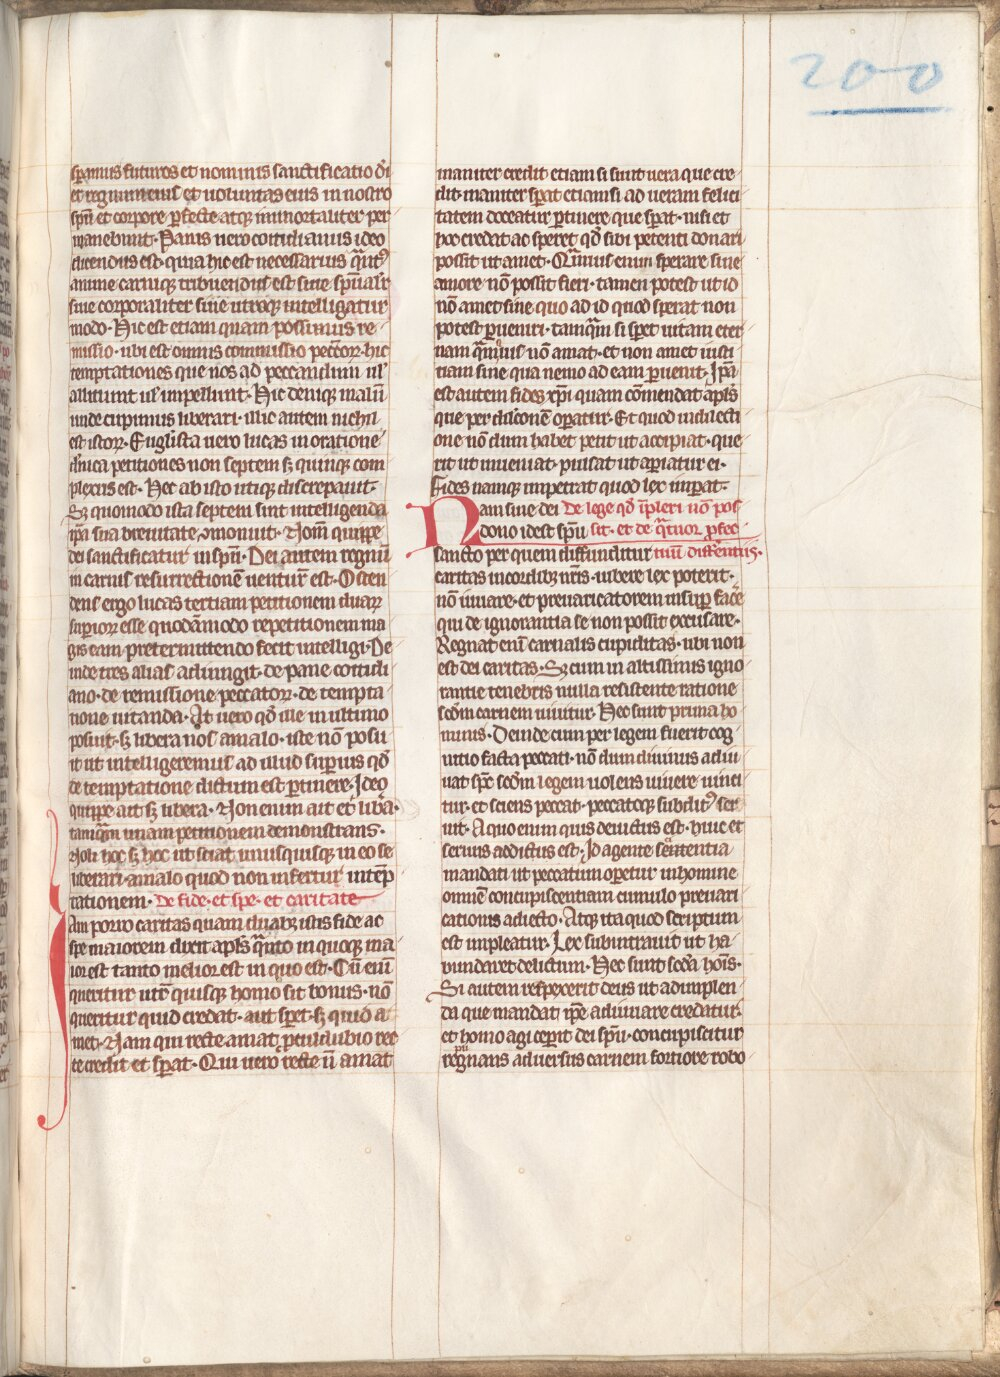 200
speramus futuros et nominis sanctificatio dei
et regnum eius et uoluntas eius in nostro
spu et corpore perfecte atque immortaliter per
manebunt. Panis uero cottidianus ideo
dicendus est. quia hic est necessarius quantus
anime carnique tribuendus est siue spualiter
siue corporaliter siue utroque intelligatur
modo. Hic est etiam quam possimus re
missio. ubi est omnis commissio peccatorum. hic
temptationes que nos ad peccandum uel
alliciunt uel impellunt. Hic denique malum
unde cupimus liberari. illic autem nichil
est istorum. Euglista uero lucas in oratione
dnica petitiones non septem sed quinque com
plexus est. Nec ab isto utique discrepauit.
Sed quomodo ista septem sint intelligenda
ipsa sua breuitate admonuit. Nomen quippe
dei sanctificatur in spu. Dei autem regnum
in carnis resurrectione uenturum est. Osten
dens ergo lucas tertiam petitionem duarum
superiorum esse quodammodo repetitionem ma
gis eam pretermittendo fecit intelligi. De
inde tres alias adiungit. de pane cottidi
ano. de remissione peccatorum. de tempta
tione uitanda. At uero quod ille in ultimo
posuit. sed libera nos a malo. iste non posu
it ut intelligeremus ad illud superius quod
de temptatione dictum est pertinere. Ideo
quippe ait sed libera. Non enim ait et libera.
tamquam unam petitionem demonstrans.
Noli hoc sed hoc ut sciat unusquisque in eo se
liberari a malo quod non infertur in temp
tationem. De fide. et spe. et caritate
Iam porro caritas quam duabus istis fide ac
spe maiorem dixit apls quanto in quoque ma
ior est tanto melior est in quo est. Cum enim
queritur utrum quisque homo sit bonus. non
queritur quid credat. aut speret. sed quid a
met. Nam qui recte amat procul dubio rec
te credit et sperat. Qui uero recte non amat
inaniter credit etiam si sunt uera que cre
dit. inaniter sperat etiamsi ad ueram felici
tatem doceatur pertinere que sperat. nisi et
hoc credat ac speret quod sibi petenti donari
possit ut amet. Quamuis enim sperare sine
amore non possit fieri. tamen potest ut id
non amet sine quo ad id quod sperat non
potest perueniri. tamquam si speret uitam eter
nam quamuis non amat. et non amet iusti
tiam sine qua nemo ad eam peruenit. Ipsa
est autem fides xpi quam comendat apls
que per dilectionem operatur. Et quod in dilecti
one nondum habet petit ut accipiat. que
rit ut inueniat. pulsat ut aperiatur ei.
Fides namque impetrat quod lex imperat.
Nam sine dei De lege quod impleri non pos
dono id est spu sit. et de quatuor perfec
sancto per quem diffunditur tium differentiis.
caritas in cordibus nostris. iubere lex poterit.
non iuuare. et preuaricatorem insuper facere
qui de ignorantia se non possit excusare.
Regnat enim carnalis cupiditas. ubi non
est dei caritas. Sed cum in altissimis igno
rantie tenebris nulla resistente ratione
secundum carnem uiuitur. Hec sunt prima ho
minis. Deinde cum per legem fuerit cog
nitio facta peccati. nondum diuinus adiu
uat spc secundum legem uolens uiuere uinci
tur. et sciens peccat. peccatoque subditus ser
uit. A quo enim quis deuictus est. huic et
seruus addictus est. Id agente sententia
mandati ut peccatum operetur in homine
omnem concupiscentiam cumulo preuari
cationis adiecto. Atque ita quod scriptum
est impleatur. Lex subintrauit ut ha
bundaret delictum. Hec sunt secunda hominis.
Si autem respexerit deus ut ad implen
da que mandat ipse adiuuare credatur.
et homo agi ceperit dei spu. concupiscitur
regnans aduersus carnem fortiore robo